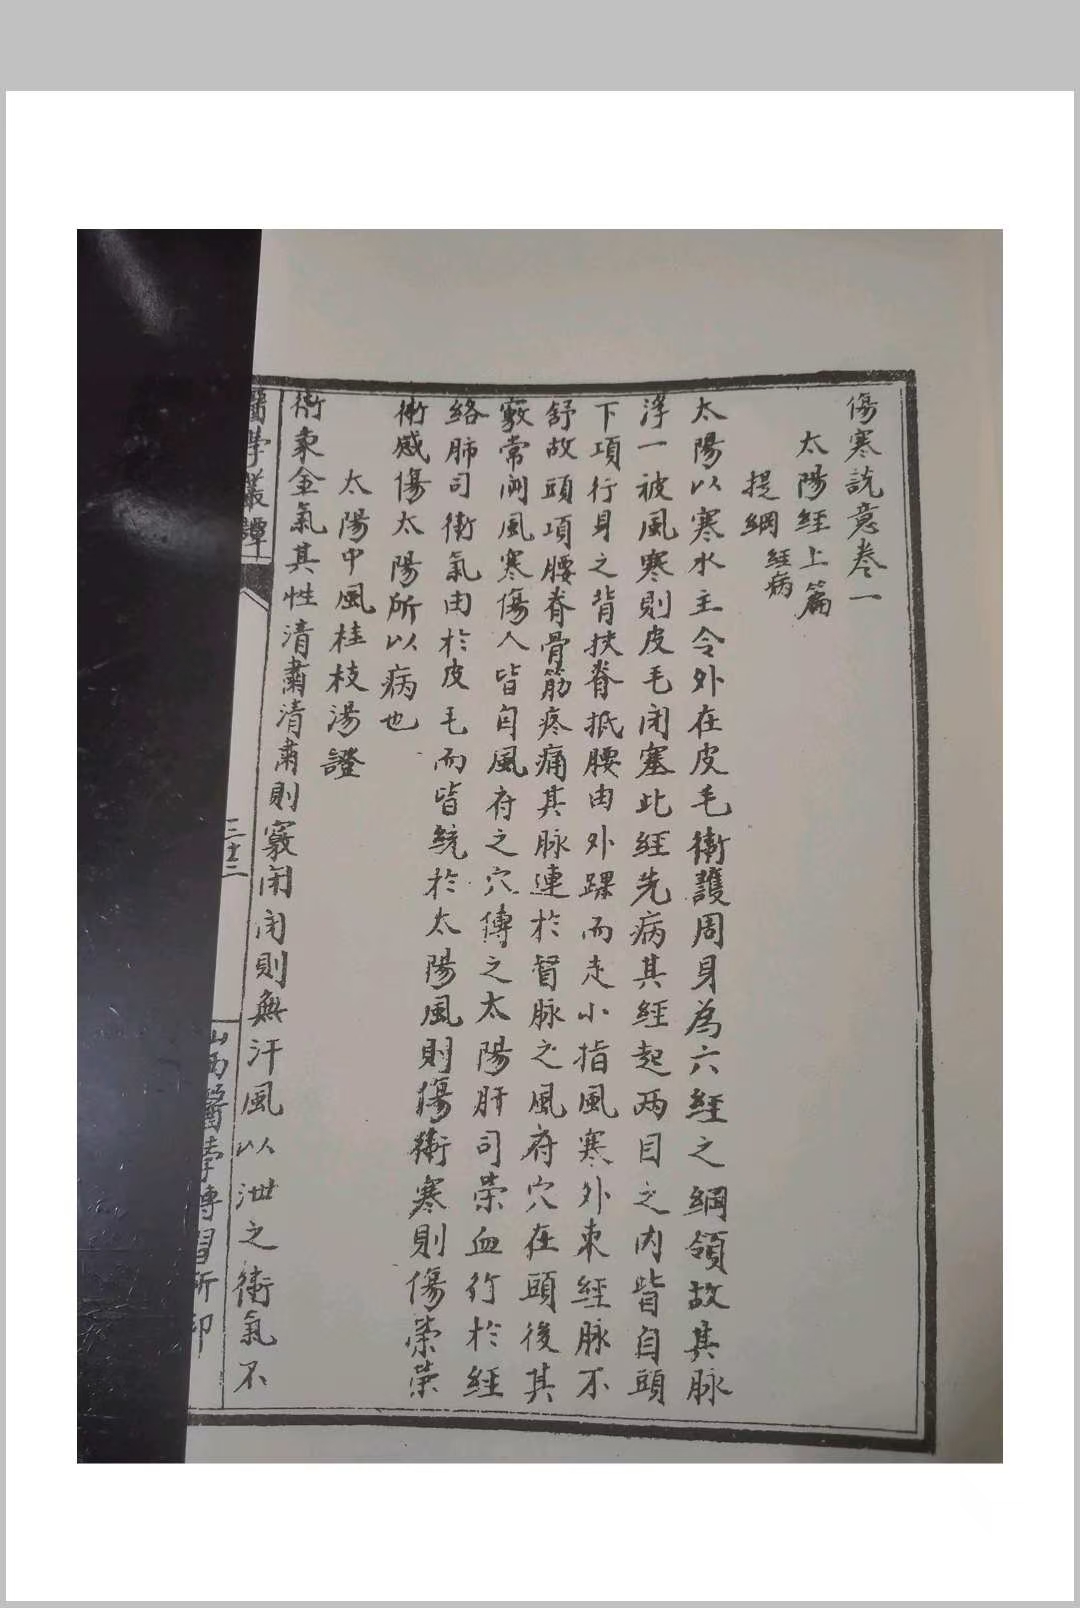 傷寒說意卷一
太陽經上篇
提綱 經病
太陽以寒水主令外在皮毛衛護周身為六經之綱領故其脈
浮一被風寒則皮毛閉塞此經先病其經起兩目之內眥自頭
下項行身之背挾脊抵腰由外踝而走小指風寒外束經脈不
舒故頭項腰脊骨筋疼痛其脈連於督脈之風府穴在頭後其
竅常開風寒傷人皆自風府之穴傳之太陽肝司榮血行於經
絡肺司衛氣由於皮毛而皆統於太陽風則傷衛寒則傷榮榮
衛感傷太陽所以病也
太陽中風桂枝湯證
衛秉金氣其性清肅清肅則竅閉閉則無汗風以泄之衛氣不
醫學叢譚
三十二
山西醫學傳習所印